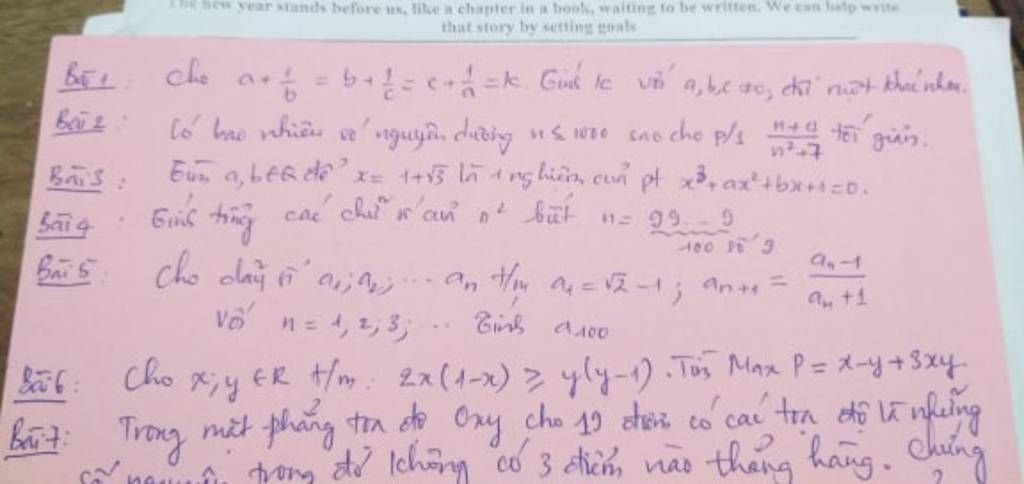 The new year stands before us, like a chapter in a book, waiting to be written. We can help write
that story by setting goals
Bài 1: Cho a + 1/b = b + 1/c = c + 1/a = k. Tính k với a, b, c ≠ 0, đôi một khác nhau.
Bài 2: Có bao nhiêu số nguyên dương n ≤ 1000 sao cho p/s (n+4)/(n²+7) tối giản.
Bài 3: Tìm a, b ∈ Q để x = 1+√3 là 1 nghiệm của pt x³ + ax² + bx + 1 = 0.
Bài 4: Tính tổng các chữ số của n² biết n = 99...9
100 số 9
Bài 5: Cho dãy số a₁; a₂; ... aₙ t/m a₁ = √2 - 1; aₙ₊₁ = (aₙ - 1)/(aₙ + 1)
Với n = 1, 2; 3; ... Tính a₁₀₀
Bài 6: Cho x; y ∈ R t/m: 2x(1-x) ≥ y(y-1). Tìm Max P = x-y+3xy
Bài 7: Trong mặt phẳng tọa độ Oxy cho 19 điểm có các tọa độ là những
số nguyên trong đó không có 3 điểm nào thẳng hàng. Chứng